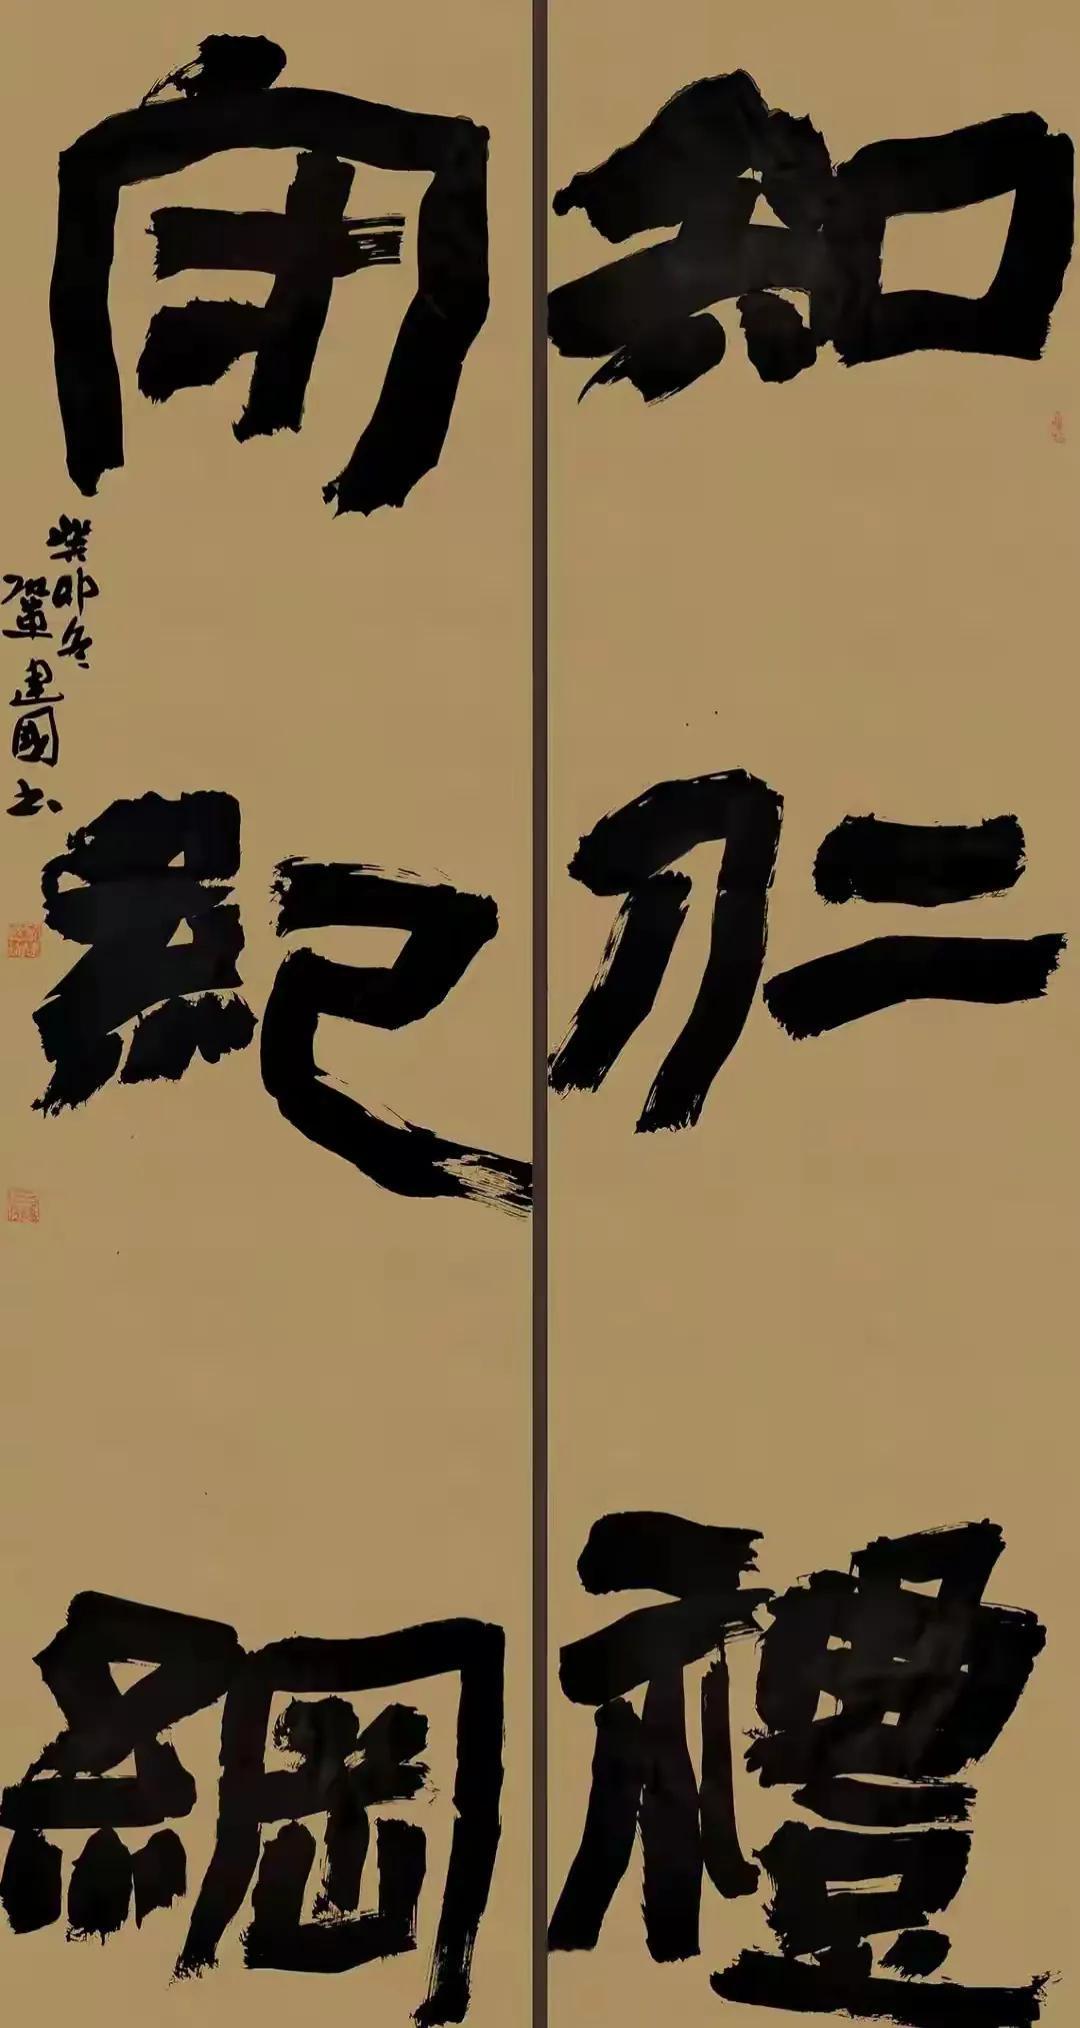 知仁禮
守紀綱
癸卯冬
鞏建國书